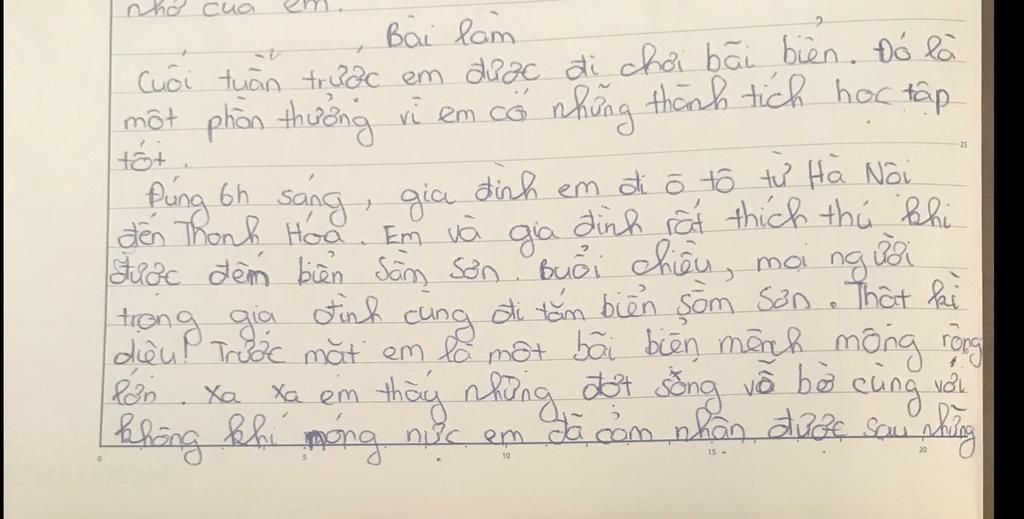 nhớ của em.
Bài làm
Cuối tuần trước em được đi chơi bãi biển. Đó là
một phần thưởng vì em có những thành tích học tập
tốt.
Đúng 6h sáng, gia đình em đi ô tô từ Hà Nội
đến Thanh Hóa. Em và gia đình rất thích thú khi
được đếm biển Sầm Sơn. Buổi chiều, mọi người
trong gia đình cùng đi tắm biển Sầm Sơn. Thật kì
diệu! Trước mắt em là một bãi biển mênh mông rộng
lớn. Xa xa em thấy những đợt sống vỗ bờ cùng với
không khí nóng nực em đã cảm nhận được sau những